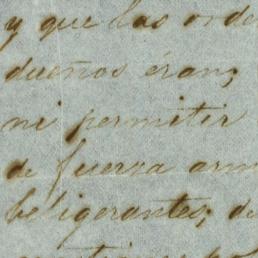 y que las orde
dueños éran;
ni permitir
de fuerza arm
beligerantes; de